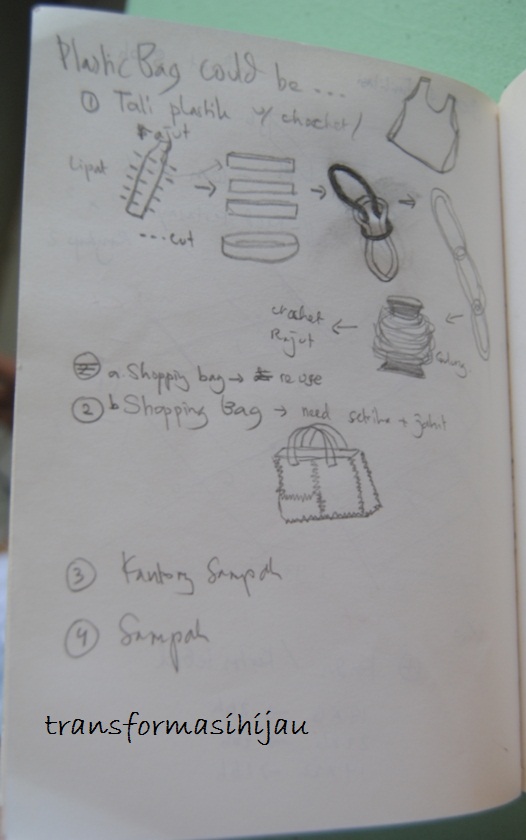 Plastic Bag could be ...
① Tali plastik w/ crochet/
Rajut
Lipat
---cut
crochet
Rajut
Gulung
a. Shopping bag → re use
② b Shopping Bag → need setrika + jahit
③ Kantong Sampah
④ Sampah
transformasihijau